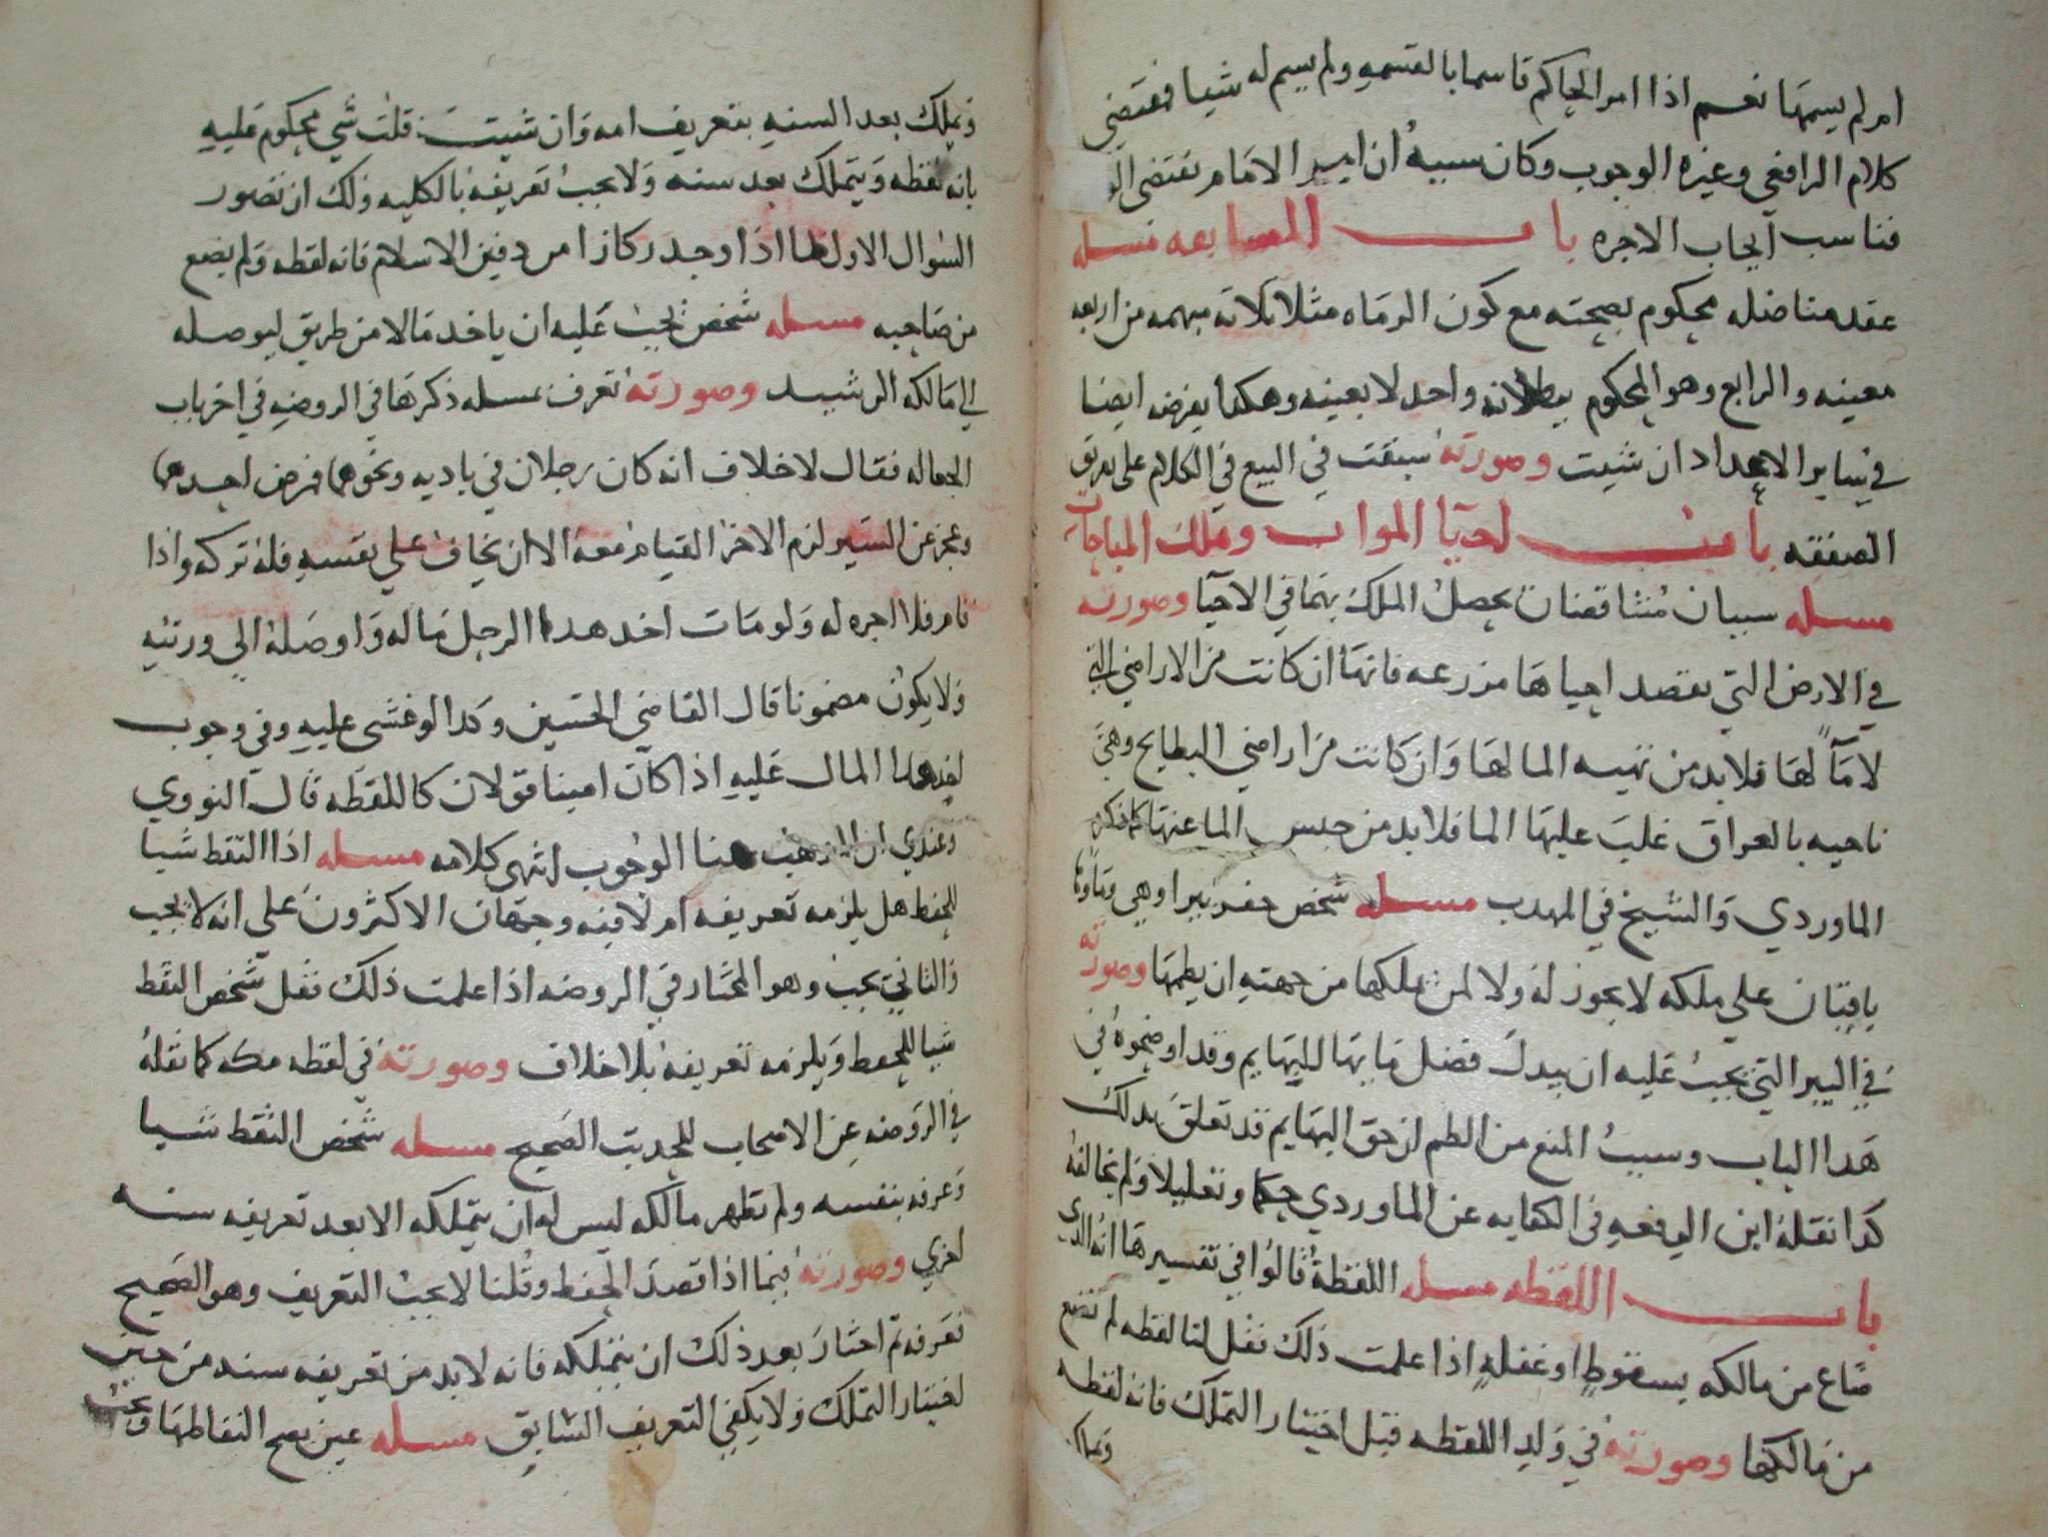 ام لم يسمها نعم اذا امر الحاكم قاسما بالقسمه ولم يسم له شيا فمقتضى
كلام الرافعي وغيره الوجوب وكان سببه ان امر الامام تقتضى
فناسب ايجاب الاجره باب المسابقه مسله
عقد مناضله محكوم بصحته مع كون الرماه مثلا ثلاثه مبهمه من اربعه
معينه والرابع وهو المحكوم ببطلانه واحد لا بعينه وهكدا يفرض ايضا
في ساير الاعداد ان شيت وصورته سبقت في البيع في الكلام على تفريق
الصفقه باب احيا الموات وملك المباحات
مسله سببان متناقضان يحصل الملك بهما في الاحيا وصورته
في الارض التي يقصد احياها مزرعه فانها ان كانت من الاراضي التي
لا مآ لها فلابد من تهيه الما لها وان كانت من اراضي البطايح وهي
ناحيه بالعراق غلب عليها الما فلابد من حبس الما عنها كما ذكره
الماوردي والشيخ في المهدب مسله شخص حفر بيرا وهي وماوها
باقيان على ملكه لا يجوز له ولا لمن يملكها من جهته ان يطمها وصورته
في البير التي يجب عليه ان يبدل فضل مابها للبهايم وقد اوضحوه في
هدا الباب وسبب المنع من الطم ان حق البهايم قد تعلق بدلك
كدا نقله ابن الرفعه في الكفايه عن الماوردي حكما وتعليلا ولم يخالفه
باب اللقطه مسله اللقطة قالوا في تفسيرها انه الدي
ضاع من مالكه بسقوط او غفلة اذا علمت ذلك فقل لنا لقطه لم تضع
من مالكها وصورته في ولد اللقطه قبل اختيار التملك فانه لقطه
وتملك
وتملك بعد السنه بتعريف امه وان شيت قلت شي محكوم عليه
بانه لقطه ويتملك بعد سنه ولا يجب تعريفه بالكليه ولك ان تصور
السوال الاول بما اذا وجد ركازا من دفين الاسلام فانه لقطه ولم يضع
من صاحبه مسله شخص يجب عليه ان ياخد مالا من طريق ليوصله
الى مالكه الرشيد وصورته تعرف بمسله ذكرها في الروضه في اخر باب
الجعاله فقال لا خلاف انه كان رجلان في باديه ونحوها فمرض احدهما
وعجز عن السير لزم الاخر القيام معه الا ان يخاف على نفسه فله تركه واذا
قام فلا اجره له ولو مات اخد هدا الرجل ماله واوصله الى ورثته
ولا يكون مضمونا قال القاضي الحسين وكدا لو غشى عليه وفي وجوب
اخد هدا المال عليه اذا كان امينا قولان كاللقطه قال النووي
وعندي ان المذهب هنا الوجوب انتهى كلامه مسله اذا التقط شيا
للحفظ هل يلزمه تعريفه ام لا فيه وجهان الاكثرون على انه لا يجب
والثاني يجب وهو المختار في الروضه اذا علمت ذلك فقل شخص التقط
شيا للحفظ ويلزمه تعريفه بلا خلاف وصورته في لقطه مكه كما نقله
في الروضه عن الاصحاب للحديث الصحيح مسله شخص التقط شيا
وعرفه بنفسه ولم تظهر مالكه ليس له ان يتملكه الا بعد تعريفه سنه
اخري وصورته فيما اذا قصد الحفظ وقلنا لا يجب التعريف وهو الصحيح
فعرفه ثم اختار بعد ذلك ان يتملكه فانه لابد من تعريفه سنه من حين
اختيار التملك ولا يكفي التعريف السابق مسله عين يصح التقاطها ويجب